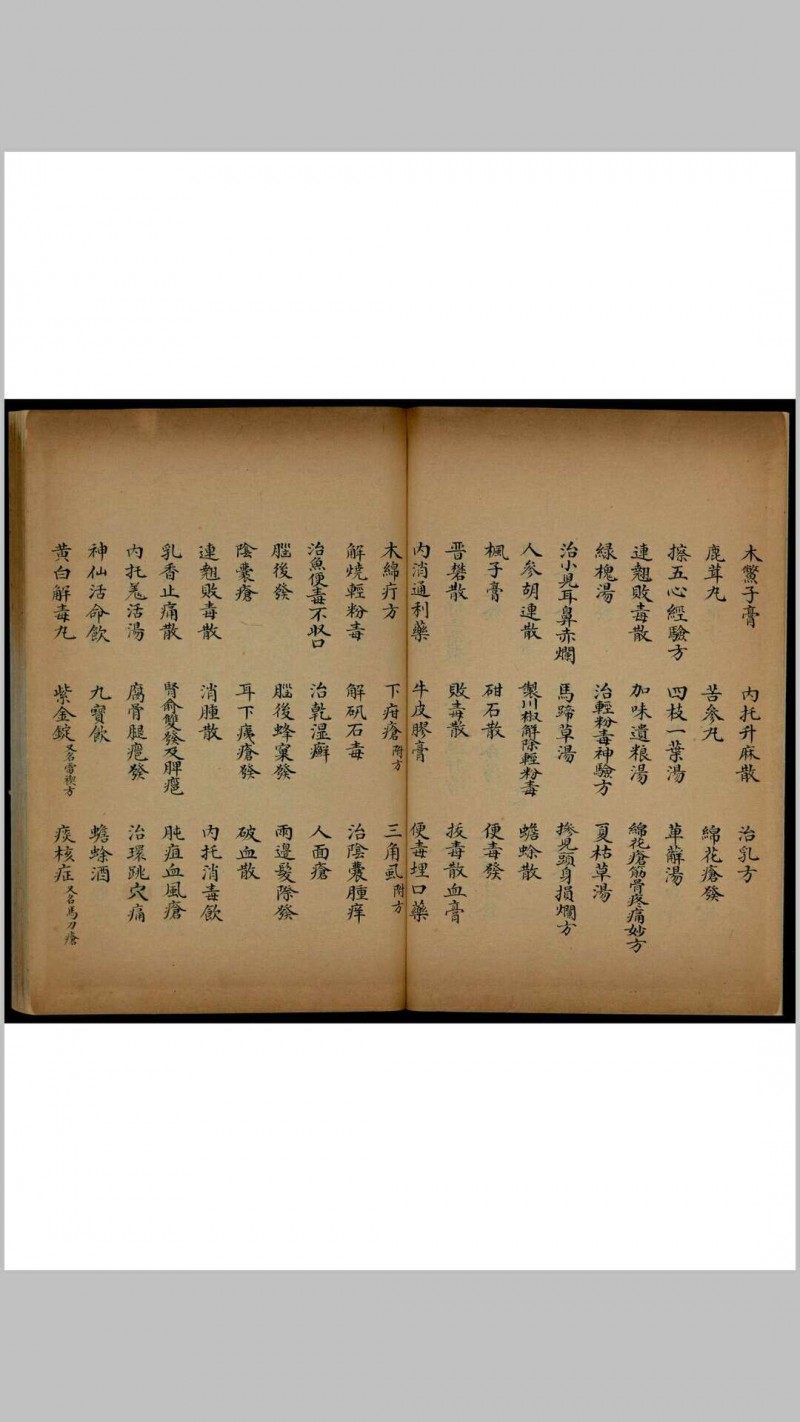 木鱉子膏　內托升麻散　治乳方
鹿茸丸　苦參丸　綿花瘡發
擦五心經驗方　四枝一葉湯　萆薢湯
連翹敗毒散　加味遺粮湯　綿花瘡筋骨疼痛妙方
綠槐湯　治輕粉毒神驗方　夏枯草湯
治小兒耳鼻赤爛　馬蹄草湯　摻兒頭身損爛方
人參胡連散　製川椒解除輕粉毒　蟾蜍散
楓子膏　砒石散　便毒發
晋礬散　敗毒散　拔毒散血膏
內消通利藥　牛皮膠膏　便毒埋口藥
木綿疔方　下疳瘡附方　三角虱附方
解燒輕粉毒　解矾石毒　治陰囊腫痒
治魚便毒不収口　治乾湿癬　人面瘡
腦後發　腦後蜂窠發　兩邊髮際發
陰囊瘡　耳下痍瘡發　破血散
連翹敗毒散　消腫散　內托消毒飲
乳香止痛散　腎俞雙發及脾疤　肫疽血風瘡
內托羗活湯　腐骨腿疤發　治環跳穴痛
神仙活命飲　九寶飲　蟾蜍酒
黃白解毒丸　紫金錠又名雪禊方　痰核症又名馬刀瘡